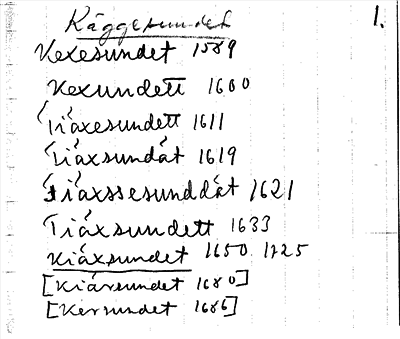 Käggesundet 1.
Kexesundet 1589
Kexundett 1600
Tiäxesundett 1611
Tiäxsundät 1619
Tiäxssesunddät 1621
Tiäxsundett 1633
Kiäxsundet 1650 1725
[Kiärsundet 1680]
[Kersundet 1686]